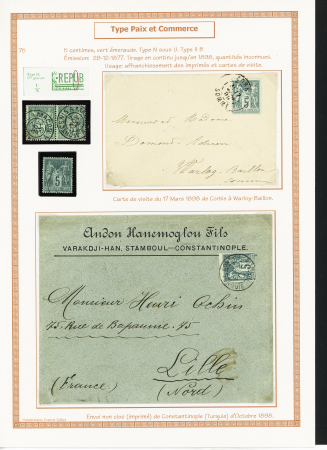 Type Paix et Commerce
75
5 centimes, vert émeraude. Type N sous U. Type II B
Émission: 28-12-1877. Tirage en continu jusqu'en 1898, quantités inconnues.
Usage: affranchissement des imprimés et cartes de visite.
RÉPUB
5
5
Monsieur et Madame
Warloy-Baillon
Somme
Carte de visite du 17 Mars 1898 de Corbie à Warloy-Baillon.
Andon Hanemoglou Fils
VARAKDJI-HAN, STAMBOUL-CONSTANTINOPLE.
Monsieur Henri Ochin
75 Rue de Bapaume 75
Lille
(France) (Nord)
Envoi non clos (imprimé) de Constantinople (Turquie) d'Octobre 1898.